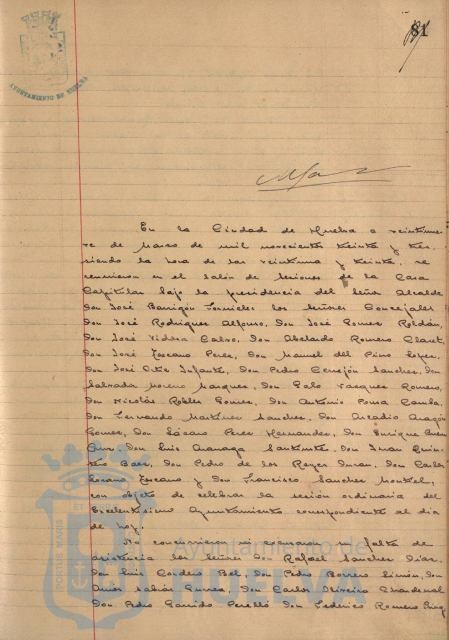 81
AYUNTAMIENTO DE HUELVA
En la Ciudad de Huelva a veintinue-
ve de Marzo de mil novecientos treinta y tres,
siendo la hora de las veintiuna y treinta, se
reunieron en el salón de sesiones de la Casa
Capitular bajo la presidencia del Señor Alcalde
Don José Barrigón Fornieles los señores Concejales
Don José Rodríguez Alfonso, Don José Gomez Roldán,
Don José Vidosa Calvo, Don Abelardo Romero Claret,
Don José Toscano Perez, Don Manuel del Pino Lopez,
Don José Ortiz Infante, Don Pedro Cerrejón Sanchez, Don
Salvador Moreno Marquez, Don Galo Vazquez Romero,
Don Nicolás Robles Gomez, Don Antonio Pousa Camba,
Don Fernando Martinez Sanchez, Don Arcadio Aragón
Gomez, Don Lázaro Perez Hernandez, Don Enrique
Don Luis Don Juan Quin-
tero Baez, Don Pedro de los Reyes Don Carlos
Lozano Toscano y Don Francisco Sanchez Montiel,
con objeto de celebrar la sesión ordinaria del
Excelentisimo Ayuntamiento correspondiente al dia
de hoy.
No concurrieron ni excusaron su falta de
asistencia los señores Don Rafael Sanchez Diaz,
Don Luis Cordero Bel, Don Pedro Borrero Limón, Don
Don Carlos Oliveira Chardenal
Don Pedro Garrido Perelló Don Federico Romero
Ayuntamiento de
HUELVA
PORTUS MARIS